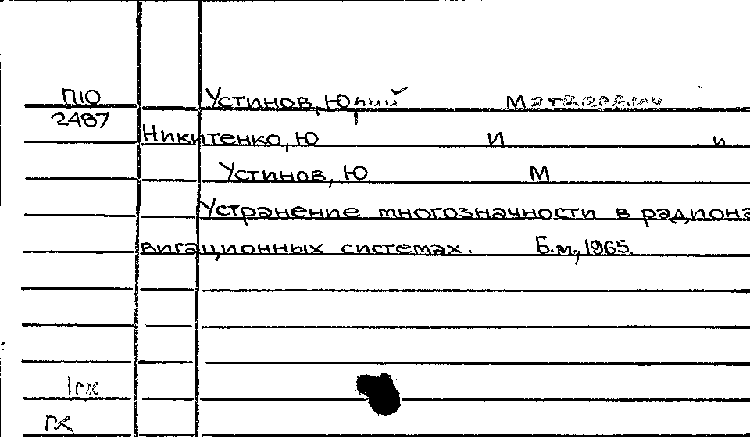 П10 Устинов, Юрий
2487
Никитенко, Ю И и
Устинов, Ю М
Устранение многозначности в радиона
вигационных системах. Б.м., 1965.
1сж
пк